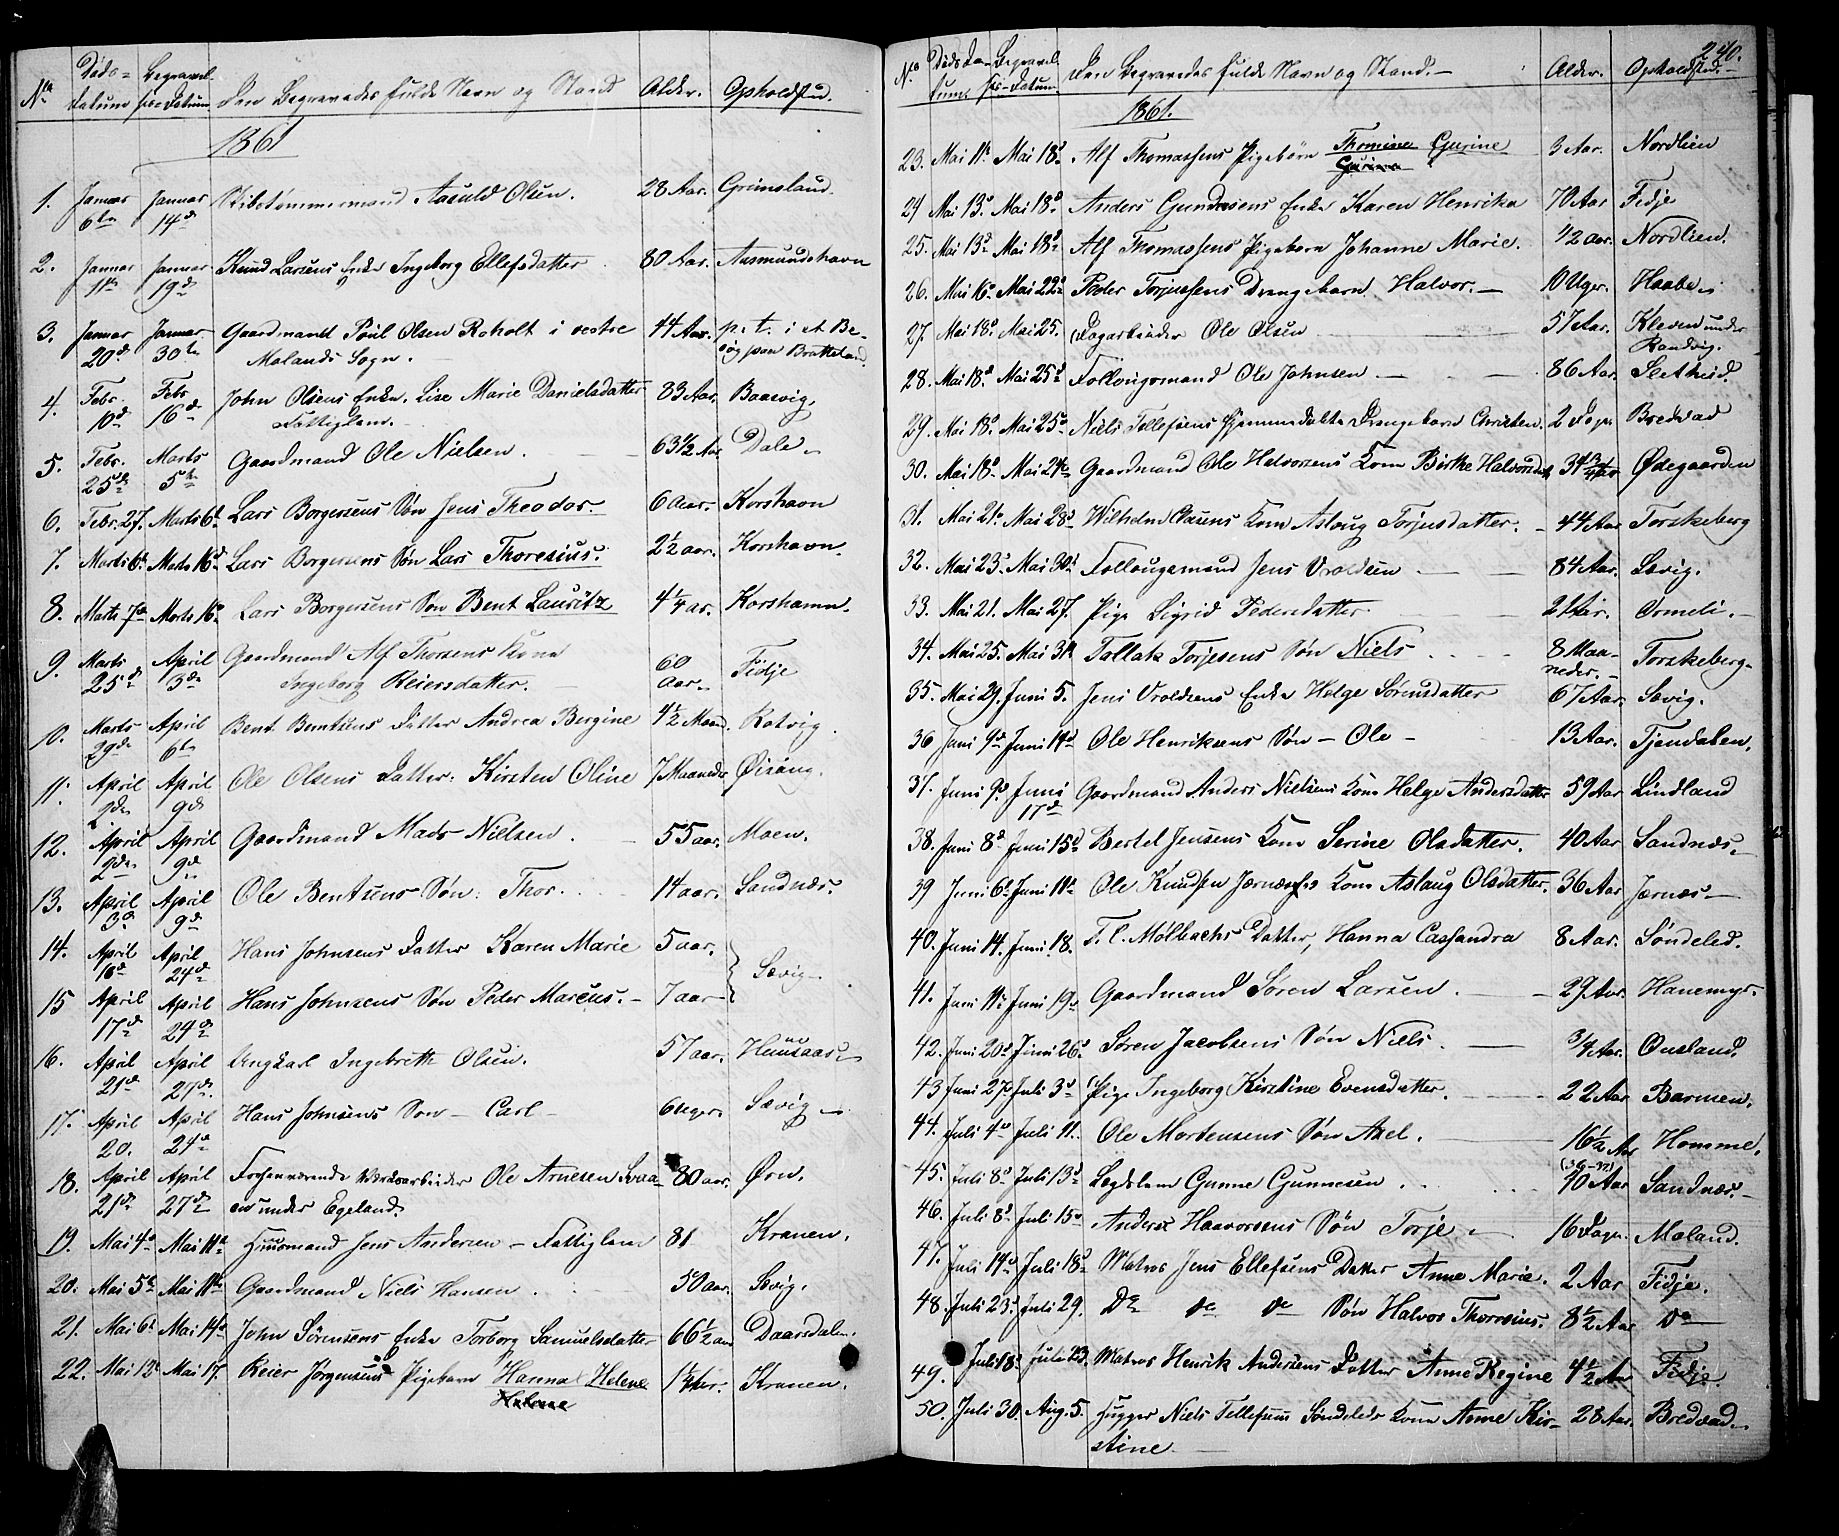 No. Døds- Datum Begravel- ses-Datum Den Begravedes fulde Navn og Stand Alder. Opholdsted.
1861
1. Januar 6te Januar 14de Skibstømmermand Aasuld Olsen. 28 Aar. Grimsland.
2. Januar 11te Januar 19de Knud Larsens Enke Ingeborg Ellefsdatter 80 Aar. Aasmundshavn
3. Januar 20de Januar 30te Gaardmand Poul Olsen Roholt i vestre 44 Aar. p. t. i et Be-
Molands Sogn. søg paa Bratteland.
4. Febr. 10de Febr 16de John Olsens Enke, Lise Marie Danielsdatter 83 Aar. Baasvig,
Fattiglem.
5. Febr. 25de Marts 5te Gaardmand Ole Nielsen. 63 1/2 Aar Dale
6. Febr. 27. Marts 6te Lars Borgersens Søn Jens Theodor. 6 aar. Korshavn
7. Marts 6te Marts 16de Lars Borgersens Søn Lars Thoresius. 2 1/2 aar. Korshavn.
8. Marts 7de Marts 16de Lars Borgersens Søn Bent Lauritz 4 1/4 ar. Korshamn.
9. Marts 25de April 3de Gaardmand Alf Thorsens Kone 60 Fidje
Ingeborg Reiersdatter. aar.
10. Marts 29de April 6te Bent Bentsens Datter Andrea Bergine 4 1/2 Maan. Rotvig.
11. April 2de April 9de Ole Olsens Datter: Kirsten Oline 7 Maaneder Øisang.
12. April 2de April 9de Gaardmand Mads Nielsen. 55 aar. Moen.
13. April 3de April 9de Ole Bentsens Søn: Thor. 14 aar. Sandnæs.
14. April 16de April 24de Hans Johnsens Datter Karen Marie 5 aar. Sævig
15 April 17de April 24de Hans Johnsens Søn Peder Marcus. 7 aar
16. April 21de April 27de Ungkarl Ingebreth Olsen. 57 aar. Huusaas
17. April 20. April 24de Hans Johnsens Søn - Carl - 6 Uger. Sævig
18. April 21de April 27de Forhenværende Værksarbeider Ole Arnesen Svaa- 80 aar. Ørn.
en under Egeland.
19. Mai 4de Mai 11te Huusmand Jens Andersen - Fattiglem 81 Kranen.
20. Mai 5te Mai 11te Gaardmand Niels Hansen. 50 aar. Sævig.
21. Mai 6te Mai 14de John Sørensens Enke Torborg Samuelsdatter 66 1/2 aar Daarsdalen.
22. Mai 12te Mai 17. Reier Jørgensens Pigebarn Hanna Helene 1 1/4 ar. Kranen.
Helene
240.
No. Døds Da- tum. Begravel- ses-Datum. Den Begravedes fulde Navn og Stand. Alder. Opholdsted.
1861.
23. Mai 11te Mai 18de Alf Thomassens Pigebørn Thomine Gurine 3 Aar. Nordlien
Gurine
24 Mai 13de Mai 18de Anders Gundersens Enke Karen Henrika 70 Aar Fidje
25. Mai 13de Mai 18de Alf Thomassens Pigebarn Johanne Marie. 1/2 aar. Nordlien.
26. Mai 16de Mai 22de Peder Torjussens Drengebarn Halvor. 10 Uger. Haabe
27. Mai 18de Mai 25. Dagarbeider Ole Olsen 57 Aar. Kleven under
Randvig.
28. Mai 18de Mai 25de Follougsmand Ole Johnsen. 86 Aar. Sletheid.
29. Mai 18de Mai 25de Niels Tellefsens hjemmedøbte Drengebarn Christen. 2 Dage Bredvad
30. Mai 18de Mai 24de Gaardmand Ole Halvorsens Kone Birthe Halvorsdatter 34 3/4 Aar Ødegaarden
31. Mai 21de Mai 28de Wilhelm Clasens Kone Aslaug Torjusdatter. 44 Aar Torskeberg
32. Mai 23de Mai 30te Follougsmand Jens Vroldsen 84 Aar. Sævig.
33. Mai 21. Mai 27. Pige Sigrid Pedersdatter 21 Aar. Ormeli.
34. Mai 25. Mai 31te Tallak Torjesens Søn Niels 8 Maa- Torskeberg.
neder.
35. Mai 29. Juni 5. Jens Vroldsens Enke Helge Sørensdatter 67 Aar. Sævig.
36 Juni 9de Juni 19de Ole Henriksens Søn - Ole - 13 Aar. Tjendalen.
37. Juni 9de Juni 17de Gaardmand Anders Nielsens Kone Helge Andersdatter 59 Aar Lindland
38. Juni 8de Juni 15de Bertel Jensens Kone Serine Olsdatter. 40 Aar Sandnæs.
39 Juni 6te Juni 11te Ole Knudsen Jærnæss Kone Aslaug Olsdatter. 36 Aar Jærnæs
40. Juni 14. Juni 18. F. C. Mølbachs Datter, Hanna Cassandra 8 Aar. Søndeled.
41. Juni 11te Juni 19de Gaardmand Søren Larsen. 29 Aar. Hanemyr.
42. Juni 20de Juni 26de Søren Jacobsens Søn Niels. 3/4 Aar. Ousland.
43 Juni 27de Juli 3de Pige Ingeborg Kirstine Evensdatter. 22 Aar Barmen.
44. Juli 4de Juli 11. Ole Mortensens Søn Axel. 16 1/2 Aar Homme.
45. Juli 8de Juli 13de Lægdslem Gunne Gunnesen 70 Aar Sandnæs.
46. Juli 8de Juli 15de Anders Haavorsens Søn Torje 16 Dage. Moland.
47. Juli 14de Juli 18de Matros Jens Ellefsens Datter Anne Marie. 2 Aar Fidje.
48. Juli 23de Juli 29. Do do do Søn Halvor Thorresius. 8 1/2 Aar Do
49. Juli 18de Juli 23. Matros Henrik Andersens Datter Anne Regine 4 1/2 Aar Fidje.
50. Juli 30. Aug. 5. Hugger Niels Tellefsens Søndeled Kone Anne Kir- 28 Aar. Bredvad
stine